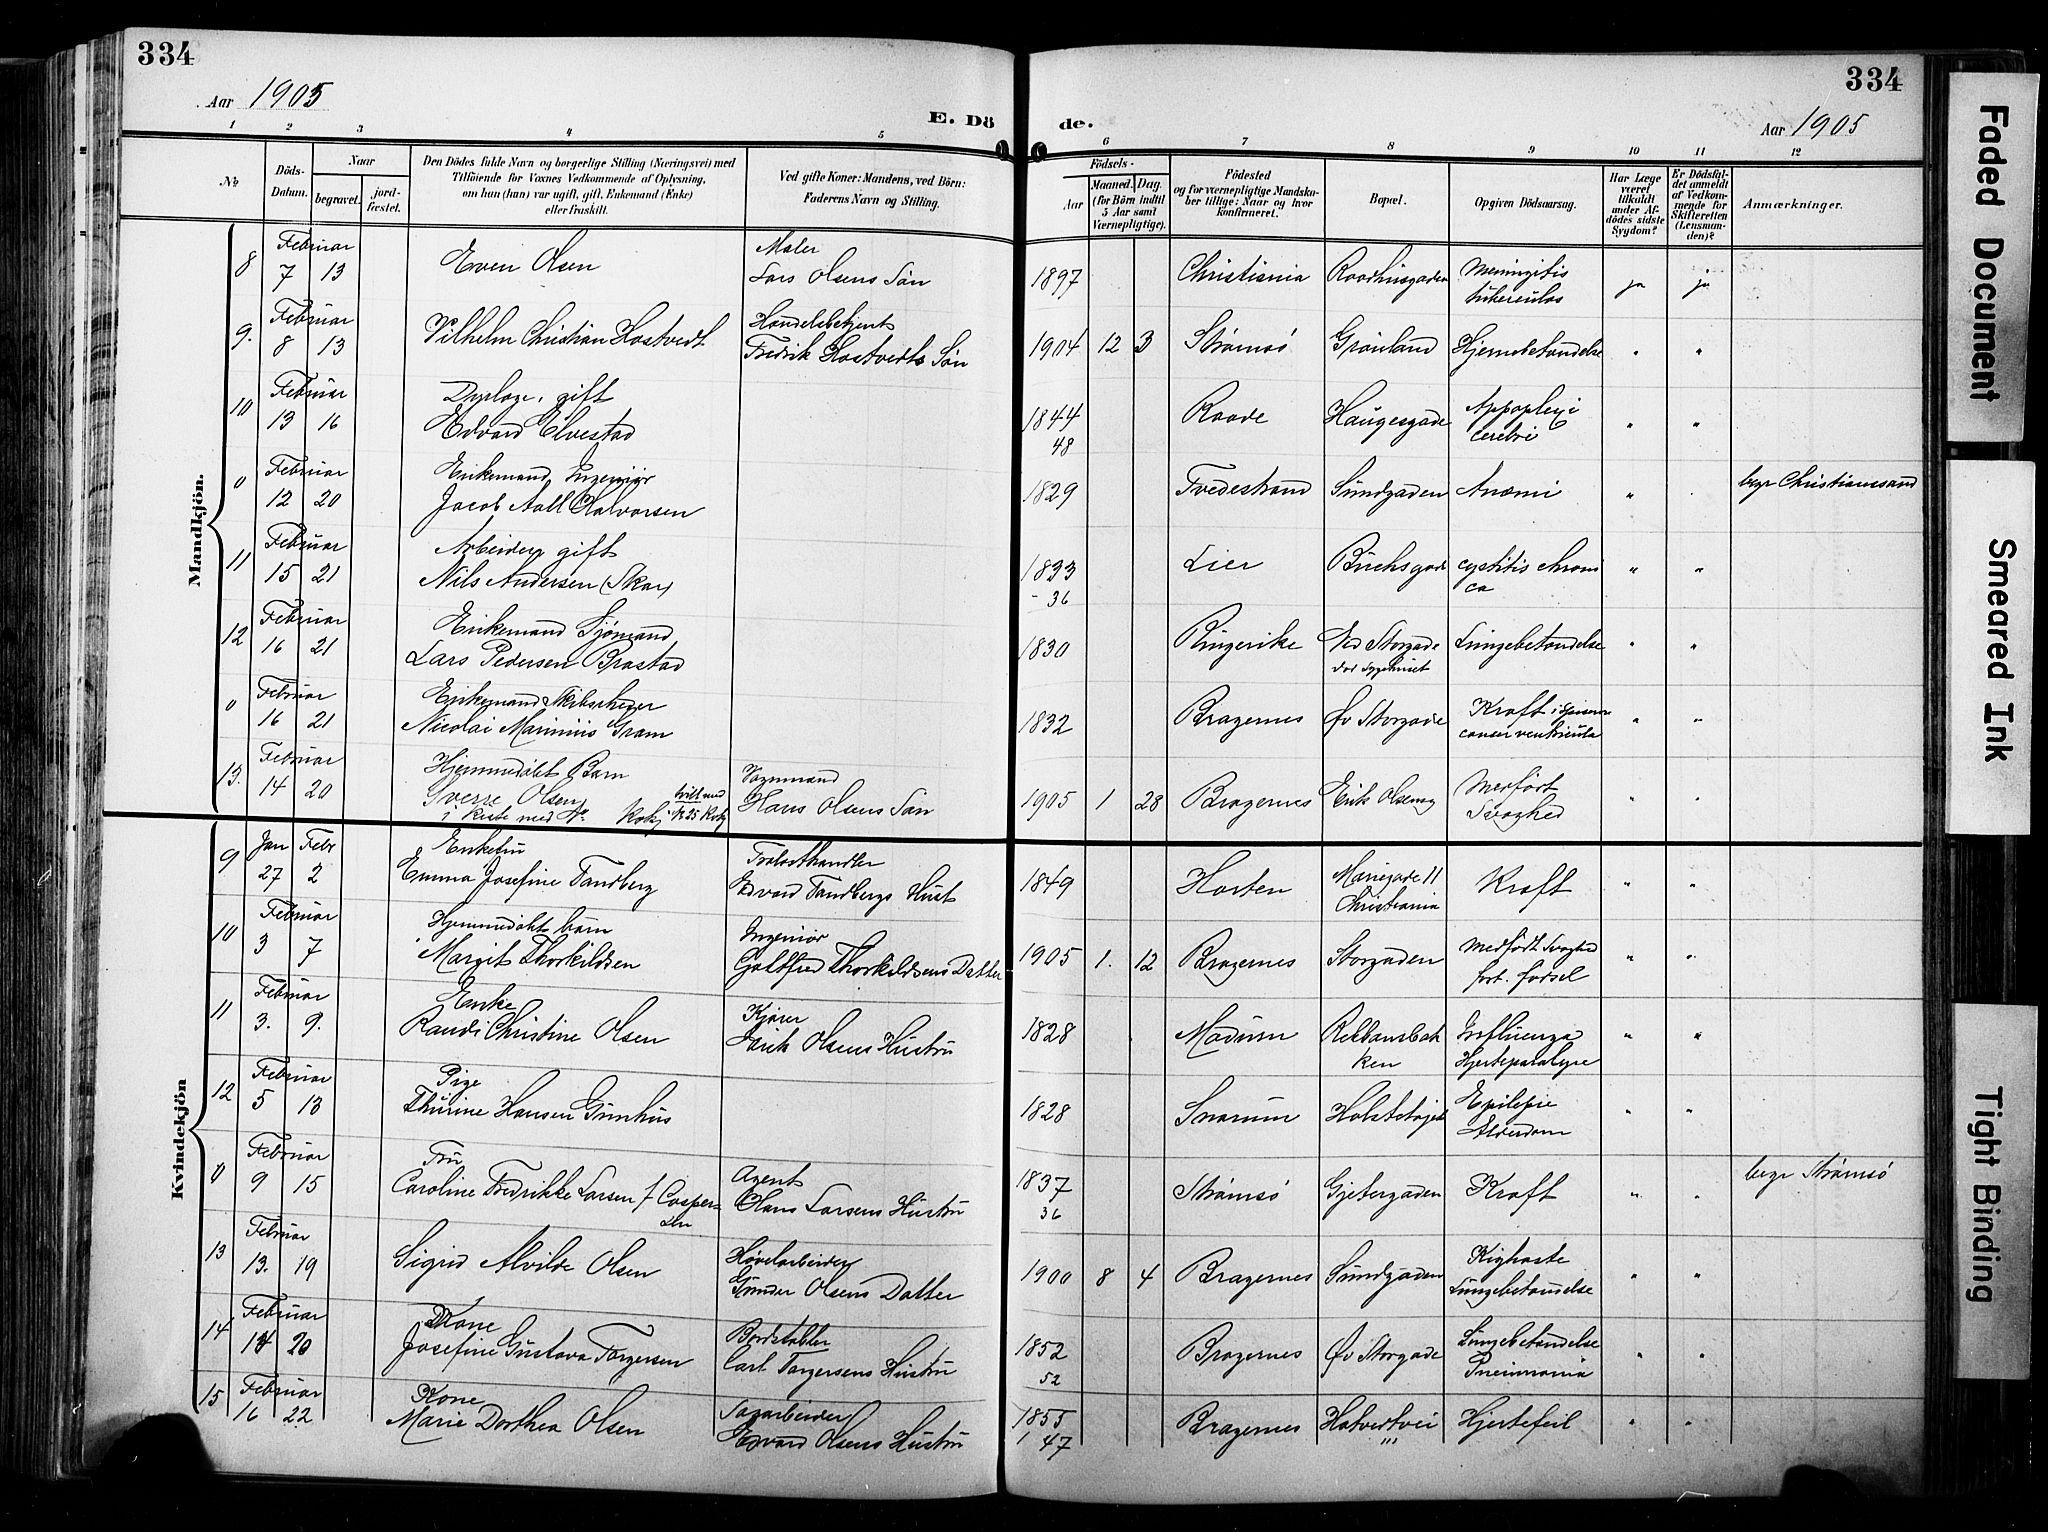 334
334
Aar 1905
E. Dö
de.
Aar 1905
1 2 3 4 5 6 7 8 9 10 11 12
No
Döds-Datum.
Naar
begravet.
jord-fæstet.
Den Dödes fulde Navn og borgerlige Stilling (Næringsvei) med
Tilföiende for Voxnes Vedkommende af Oplysning,
om han (hun) var ugift, gift, Enkemand (Enke)
eller fraskilt.
Ved gifte Koner: Mandens, ved Börn:
Faderens Navn og Stilling.
Födsels-
Aar
Maaned. Dag.
(for Börn indtil
5 Aar samt
Værnepligtige).
Födested
og for værnepligtige Mandska-
ber tillige: Naar og hvor
konfirmeret.
Bopæl.
Opgiven Dödsaarsag.
Har Læge
været
tilkaldt
under Af-
dödes sidste
Sygdom?
Er Dödsfal-
det anmeldt
af Vedkom-
mende for
Skifteretten
(Lensman-
den)?
Anmærkninger.
Mandkjön.
8 Februar 7 13 Even Olsen Maler Lars Olsens Søn 1897 Christiania Raadhusgaden Meningitis tuberculos ja ja
9. Februar 8 13 Vilhelm Christian Hostvedt Handelsbetjent Fredrik Hostvedts Søn 1904 12 3 Strømsö Grønland Hjernebetændelse " "
10 Februar 13 16 gift Edvard Elvestad 1844 48 Raade Haugesgade Appoplexi cerebri " "
0 Februar 12 20 Enkemand, Ingeniør Jacob Aall Halvorsen 1829 Tvedestrand Sundgaden Anæmi " " begr Christianssand
11 Februar 15 21 Arbeider gift Nils Andersen (Skar) 1833 - 36 Lier Buchsgade cystitis chronica " "
12 Februar 16 21 Enkemand Sjømand Lars Pedersen Brastad 1830 Ringerike Ned Storgade Lungebetændelse " "
0 Februar 16 21 Enkemand Skibsreder Nicolai Marinius Gram 1832 Bragernes Øv Storgade Kræft i cancer ventricula " "
13. Februar 14 20 Hjemmedøbt Barn Sverre Olsen i kiste med No Vognmand Hans Olsens Søn 1905 1 28 Bragernes Erik Olsens Medført Svaghed " "
Kvindekjön
9 Jan 27 Febr 2 Enkefru Emma Josefine Tandberg Trælasthandler Edvard Tandbergs Hust 1849 Horten Mariegade 11 Christiania Kræft " "
10 Februar 3 7 Hjemmedøbt barn Margit Thorkildsen Ingeniør Gotfred Thorkildsens Datter 1905 1. 12 Bragernes Storgaden Medført Svaghed fort. fødsel " "
11 Februar 3. 9. Enke Randi Christine Olsen Kjører Erik Olsens Hustru 1828 Modum Rebbansbakken Influenza Hjerteparalyse " "
12 Februar 5 13 Pige Thurine Hansen Gunhus 1828 Snarum Epilepsie Alderdom " "
0 Februar 9 15 Fru Caroline Fredrikke Larsen f Caspersen Agent Olaus Larsens Hustru 1837 36 Strømsö Gjetergaden Kræft " " begr Strømsö
13 Februar 13. 19 Sigrid Alvilde Olsen Høvelarbeider Gunder Olsens Datter 1900 8 4 Bragernes Sundgaden Kighoste Lungebetændelse " "
14 Februar 14 20 Kone Josefine Gustava Torgersen Bordstabler Carl Torgersens Hustru 1852 52 Bragernes Øv Storgade Lungebetændelse Pneumonia " "
15 Februar 16 22 Kone Marie Dorthea Olsen Sagarbeider Edvard Olsens Hustru 1855 1 47 Bragernes Hotvedtvei Hjertefeil " "
Faded Document
Smeared Ink
Tight Binding